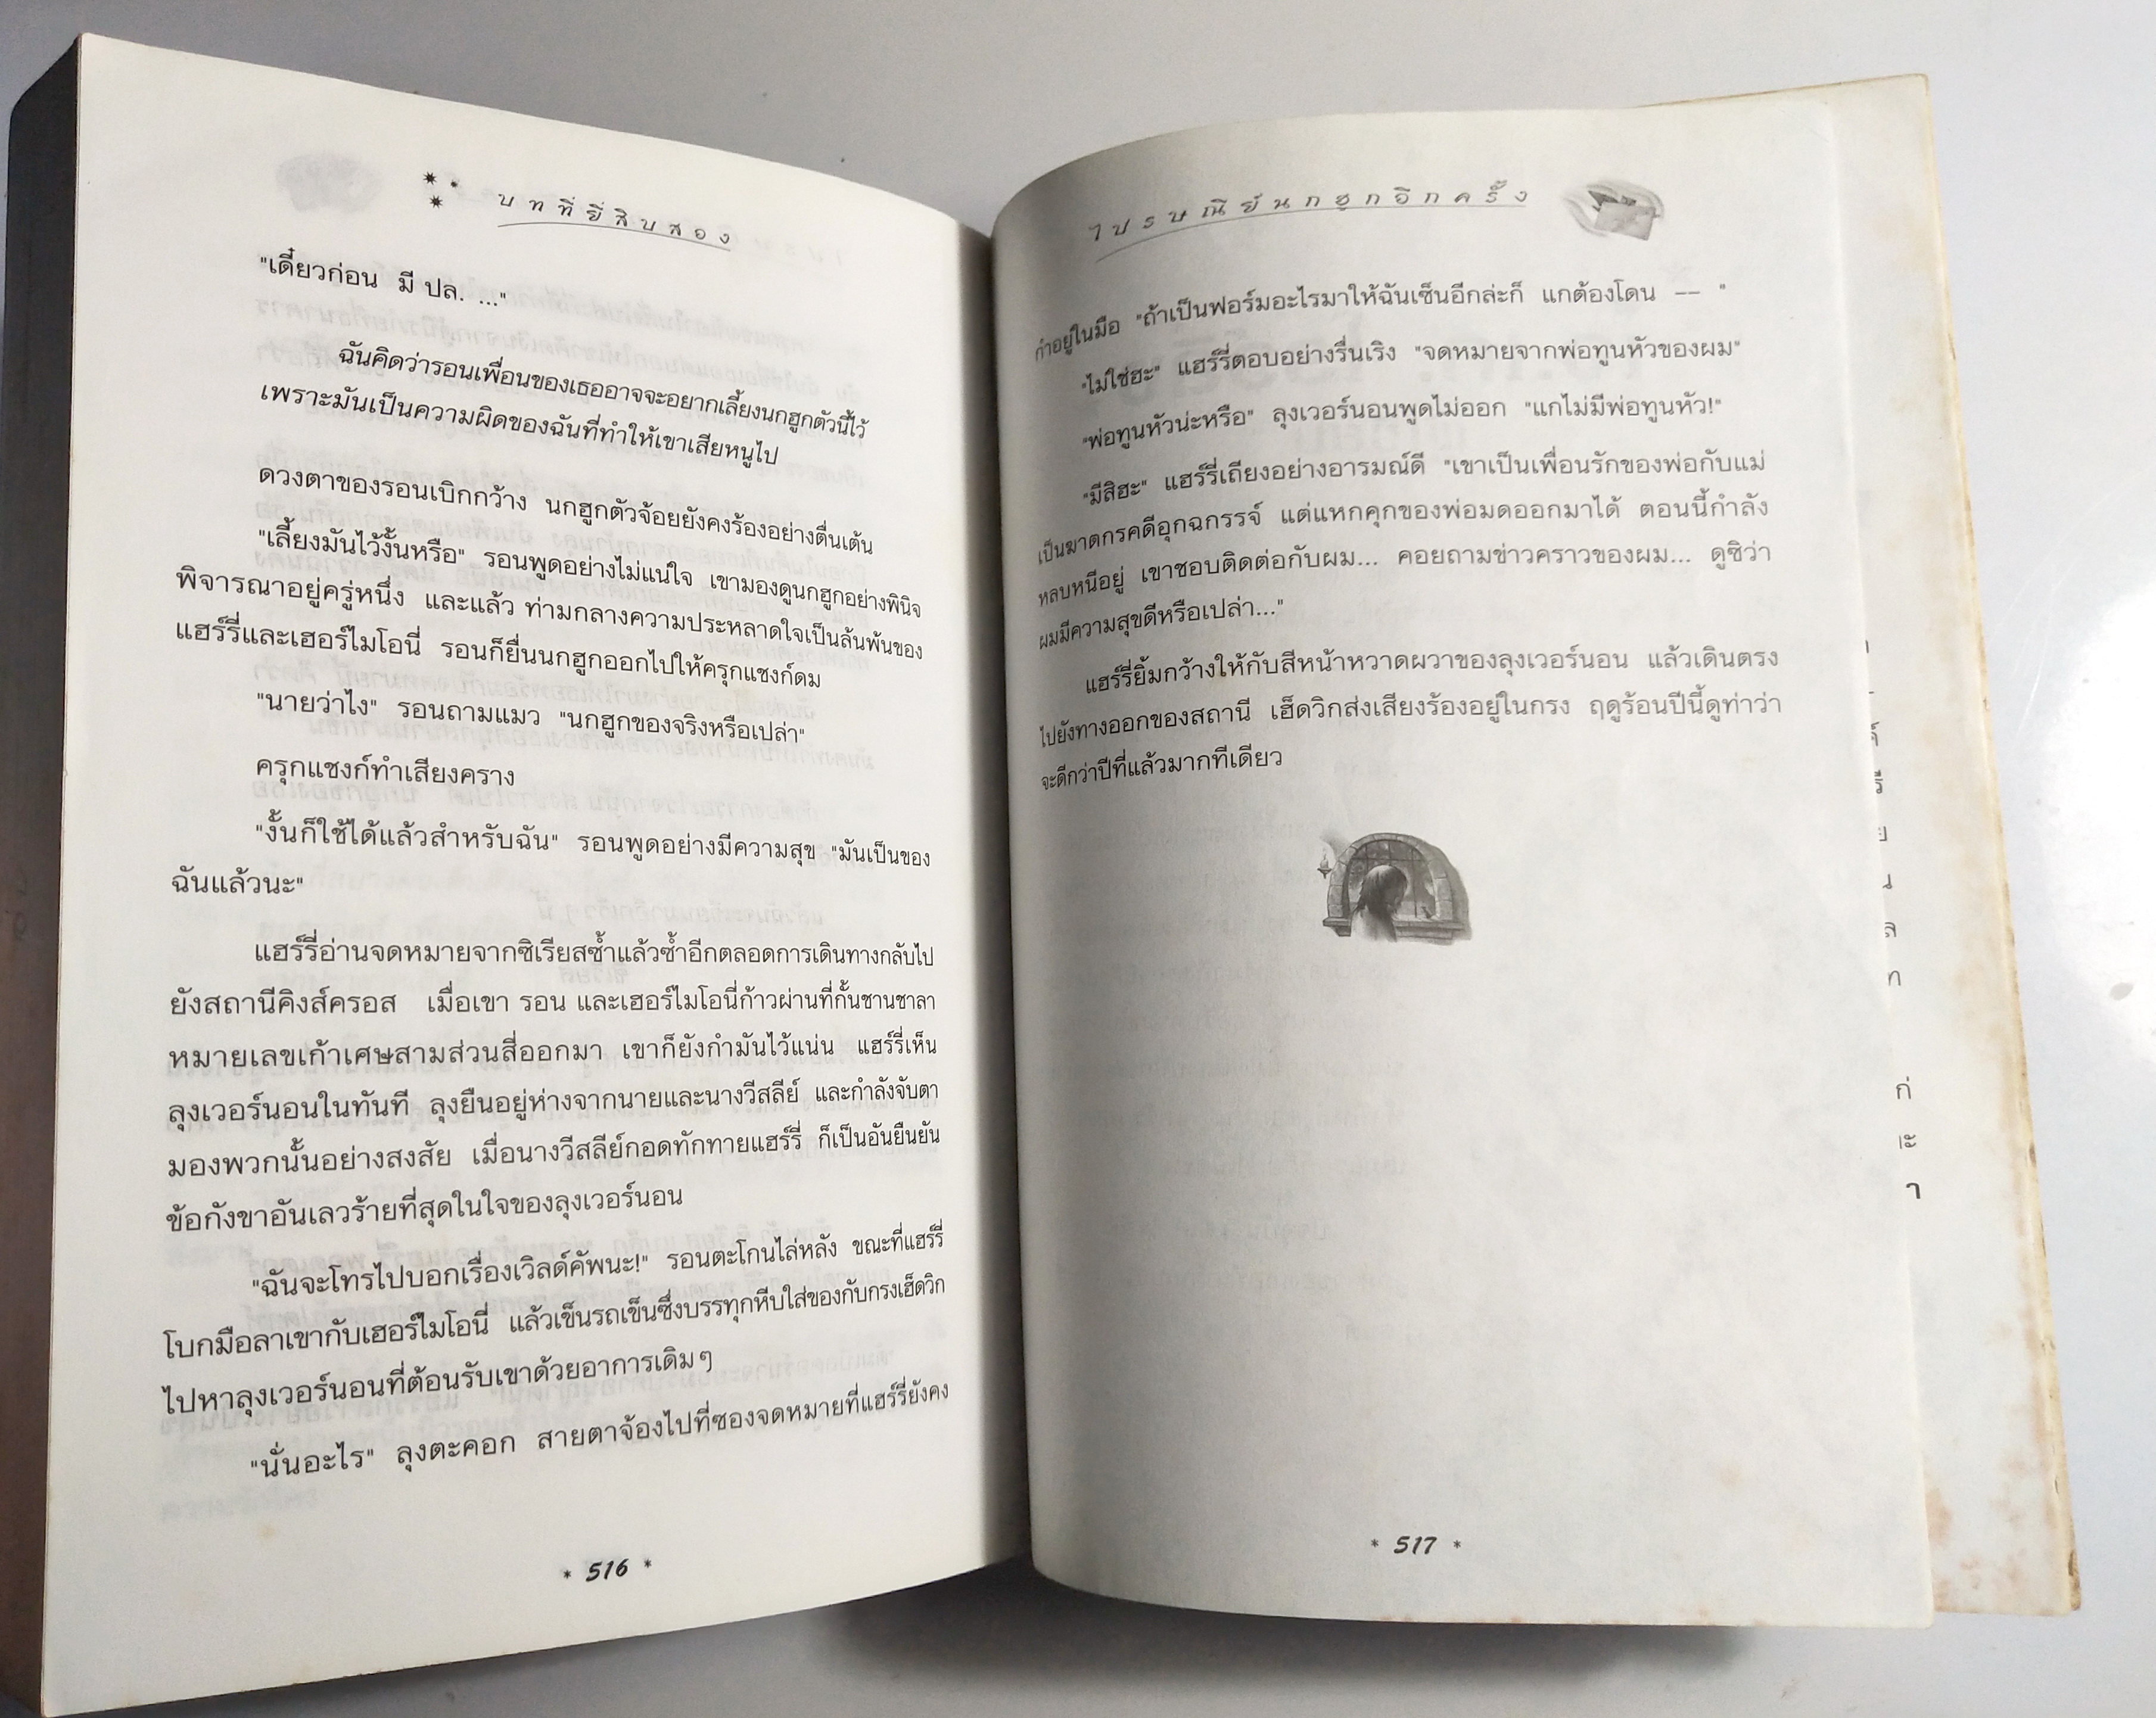 บทที่ยี่สิบสอง
"เดี๋ยวก่อน มี ปล. ..."
ฉันคิดว่ารอนเพื่อนของเธออาจจะอยากเลี้ยงนกฮูกตัวนี้ไว้
เพราะมันเป็นความผิดของฉันที่ทำให้เขาเสียหนูไป
ดวงตาของรอนเบิกกว้าง นกฮูกตัวจ้อยยังคงร้องอย่างตื่นเต้น
"เลี้ยงมันไว้งั้นหรือ" รอนพูดอย่างไม่แน่ใจ เขามองดูนกฮูกอย่างพินิจ
พิจารณาอยู่ครู่หนึ่ง และแล้ว ท่ามกลางความประหลาดใจเป็นล้นพ้นของ
แฮร์รี่และเฮอร์ไมโอนี่ รอนก็ยื่นนกฮูกออกไปให้ครุกแชงก์ดม
"นายว่าไง" รอนถามแมว "นกฮูกของจริงหรือเปล่า"
ครุกแชงก์ทำเสียงคราง
"งั้นก็ใช้ได้แล้วสำหรับฉัน" รอนพูดอย่างมีความสุข "มันเป็นของ
ฉันแล้วนะ"
แฮร์รี่อ่านจดหมายจากซิเรียสซ้ำแล้วซ้ำอีกตลอดการเดินทางกลับไป
ยังสถานีคิงส์ครอส เมื่อเขา รอน และเฮอร์ไมโอนี่ก้าวผ่านที่กั้นชานชาลา
หมายเลขเก้าเศษสามส่วนสี่ออกมา เขาก็ยังกำมันไว้แน่น แฮร์รี่เห็น
ลุงเวอร์นอนในทันที ลุงยืนอยู่ห่างจากนายและนางวีสลีย์ และกำลังจับตา
มองพวกนั้นอย่างสงสัย เมื่อนางวีสลีย์กอดทักทายแฮร์รี่ ก็เป็นอันยืนยัน
ข้อกังขาอันเลวร้ายที่สุดในใจของลุงเวอร์นอน
"ฉันจะโทรไปบอกเรื่องเวิลด์คัพนะ!" รอนตะโกนไล่หลัง ขณะที่แฮร์รี่
โบกมือลาเขากับเฮอร์ไมโอนี่ แล้วเข็นรถเข็นซึ่งบรรทุกหีบใส่ของกับกรงเฮ็ดวิก
ไปหาลุงเวอร์นอนที่ต้อนรับเขาด้วยอาการเดิมๆ
"นั่นอะไร" ลุงตะคอก สายตาจ้องไปที่ซองจดหมายที่แฮร์รี่ยังคง
* 516 *
ไปรษณีย์นกฮูกอีกครั้ง
กำอยู่ในมือ "ถ้าเป็นฟอร์มอะไรมาให้ฉันเซ็นอีกล่ะก็ แกต้องโดน -- "
"ไม่ใช่ฮะ" แฮร์รี่ตอบอย่างรื่นเริง "จดหมายจากพ่อทูนหัวของผม"
"พ่อทูนหัวน่ะหรือ" ลุงเวอร์นอนพูดไม่ออก "แกไม่มีพ่อทูนหัว!"
"มีสิฮะ" แฮร์รี่เถียงอย่างอารมณ์ดี "เขาเป็นเพื่อนรักของพ่อกับแม่
เป็นฆาตกรคดีอุกฉกรรจ์ แต่แหกคุกของพ่อมดออกมาได้ ตอนนี้กำลัง
หลบหนีอยู่ เขาชอบติดต่อกับผม... คอยถามข่าวคราวของผม... ดูซิว่า
ผมมีความสุขดีหรือเปล่า..."
แฮร์รี่ยิ้มกว้างให้กับสีหน้าหวาดผวาของลุงเวอร์นอน แล้วเดินตรง
ไปยังทางออกของสถานี เฮ็ดวิกส่งเสียงร้องอยู่ในกรง ฤดูร้อนปีนี้ดูท่าว่า
จะดีกว่าปีที่แล้วมากทีเดียว
* 517 *